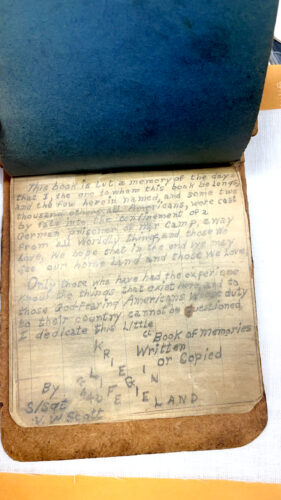 This book is but a memory of the days
that I, the one to whom this book belongs,
and the few herein named, and some two
thousand other, all Americans, were cast
by fate into the confinement of a
German prisoner of war camp, away
from all worldly things, and those we
love. We hope that in the end we may
see our home land and those we love;
Only those who have had the experience
know the things that exist here, and to
those God-fearing Americans whose duty
to their country cannot be questioned
I dedicate this little
"Book of Memories
Written
or Copied
KRIEGIE
LIFE
IN
LAND
By
S/sgt
V. W. Scott